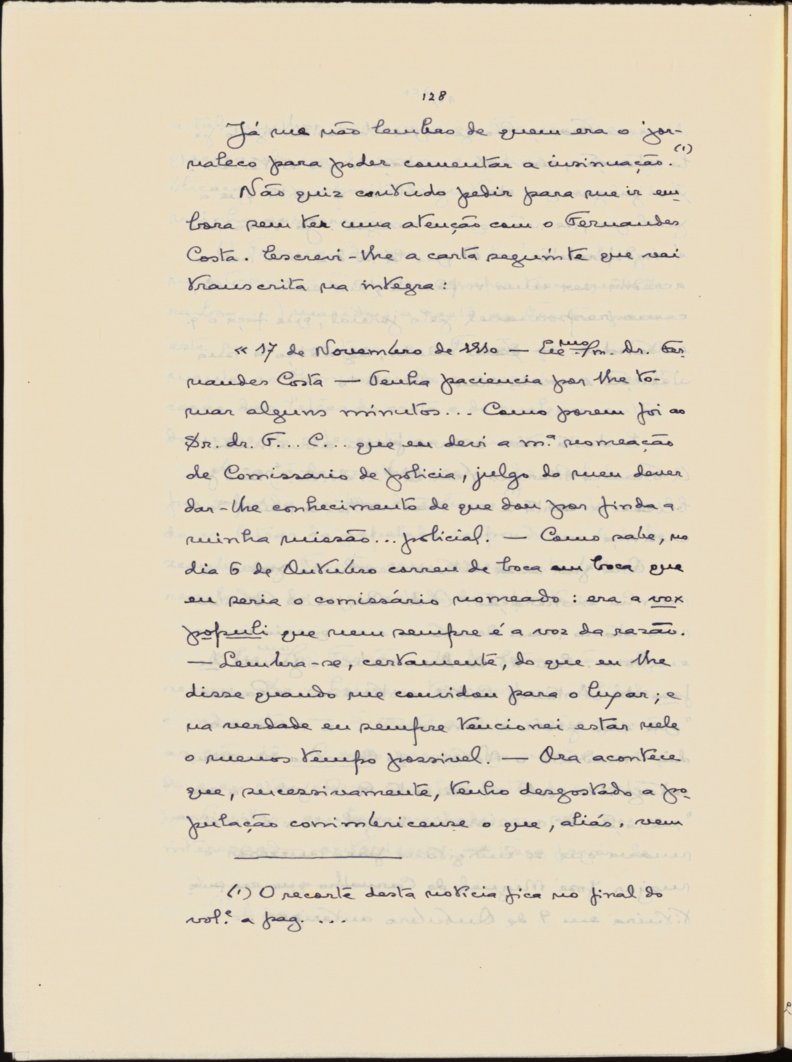 128
Já me não lembro de quem era o jor-
naleco para poder comentar a insinuação. (1)
Não quiz contudo pedir para me ir em-
bora sem ter uma atenção com o Fernandes
Costa. Escrevi-lhe a carta seguinte que vai
transcrita na integra:
« 17 de Novembro de 1910 — Exc.mo Sm. Dr. Fer-
nandes Costa — Tenha paciencia por lhe to-
mar alguns minutos... Como porem foi ao
Dr. F... C... que eu devi a m.ª nomeação
de Comissario de policia, julgo do meu dever
dar-lhe conhecimento de que dou por finda a
minha missão... policial. — Como sabe, no
dia 6 de Outubro correu de boca em boca que
eu seria o comissário nomeado: era a vox
populi que nem sempre é a voz da razão.
— Lembra-se, certamente, do que eu lhe
disse quando me convidou para o lugar; e
na verdade eu sempre tencionei estar nele
o menos tempo possivel. — Ora acontece
que, sucessivamente, tenho desgostado a po-
pulação conimbricense o que, aliás, vem
(1) O recorte desta noticia fica no final do
vol.e a pag. ...